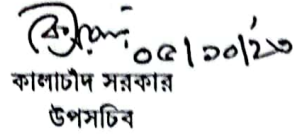 ০৫/১০/২৩
কালাচাঁদ সরকার
উপসচিব